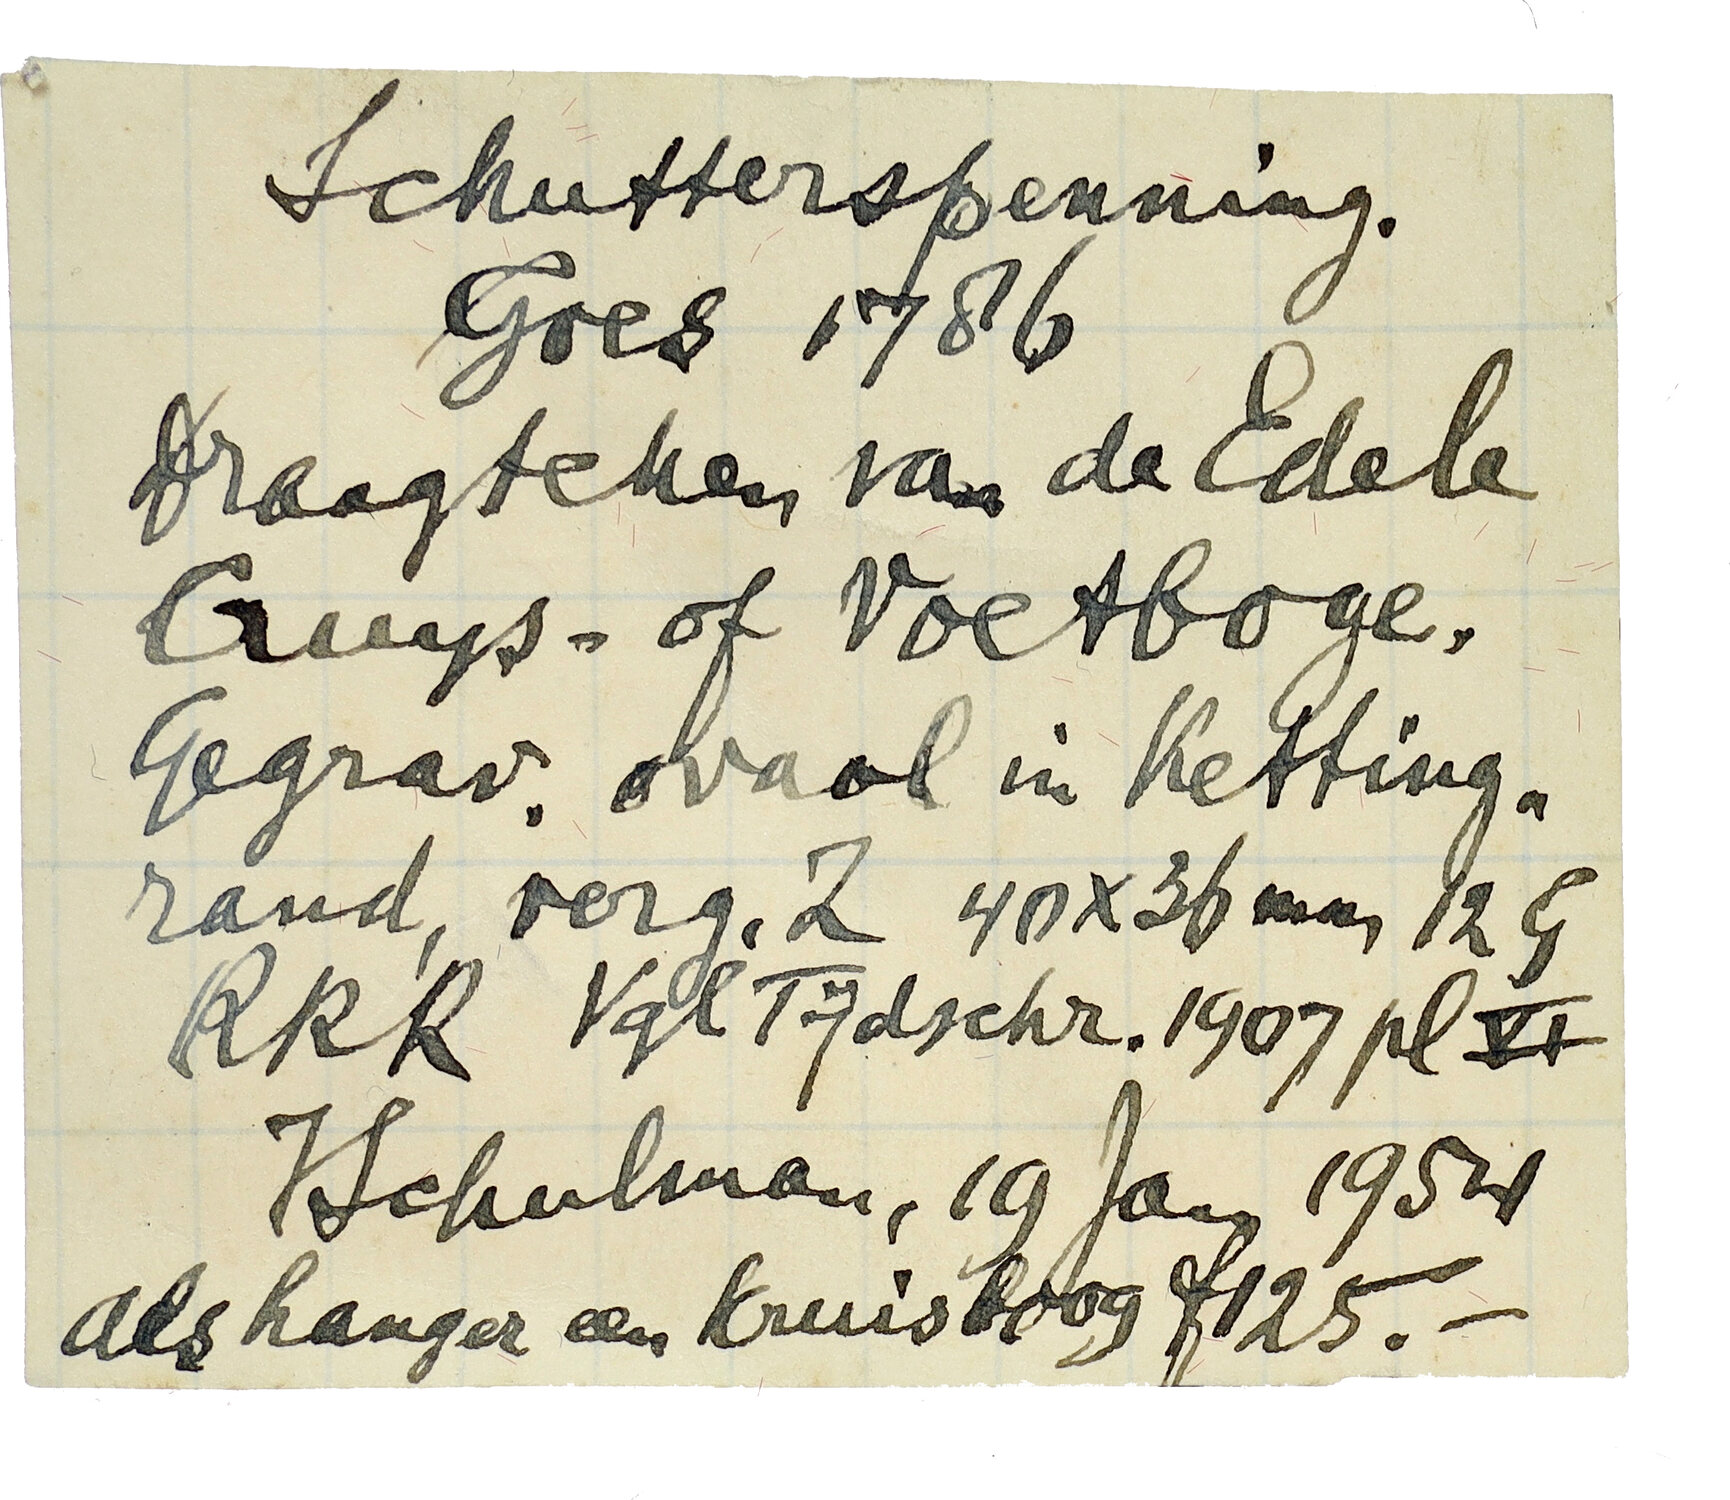 Schutterspenning.
Goes 1786
Draagteken van de Edele
Cruys- of Voetboge.
Gegrav. ovaal in Ketting-
rand, verg. Z 40 x 36 mm 12 G
RRR Vgl Tijdschr. 1907 pl VI
Schulman, 19 Jan 1954
als hanger een kruisboog f 125.—